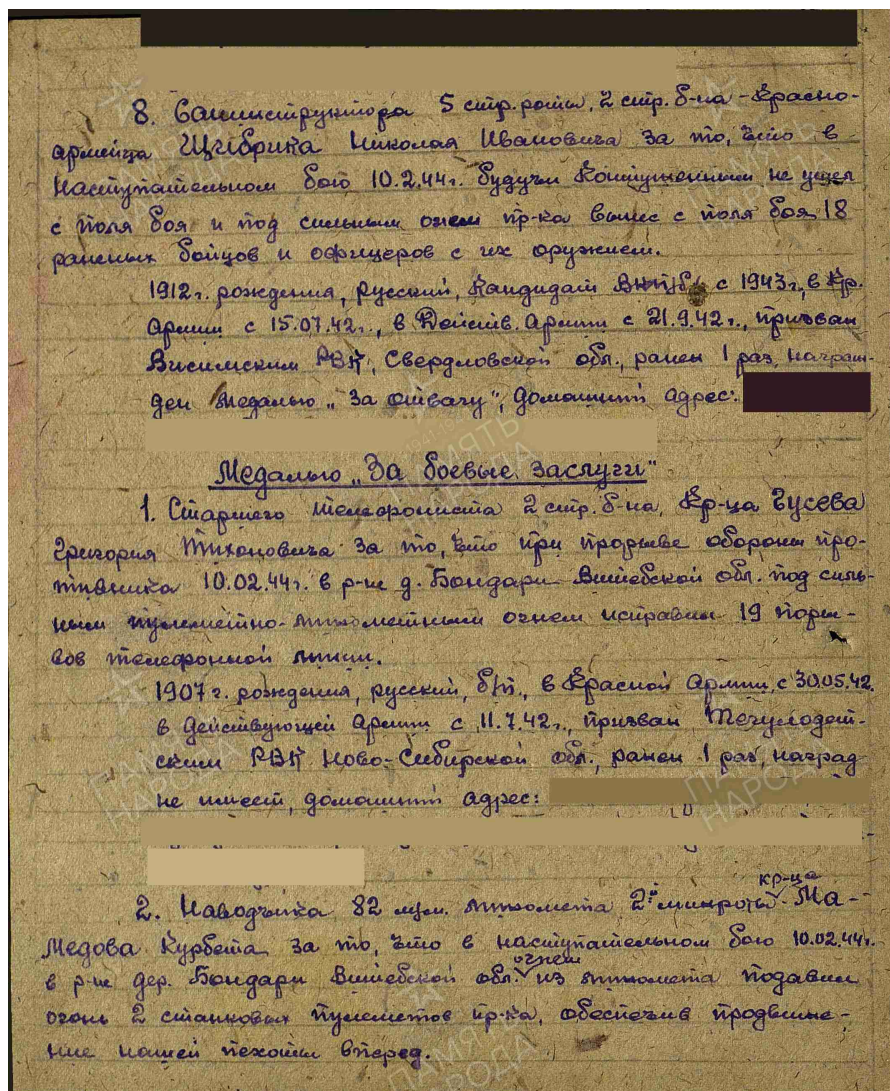 8. Санинструктора 5 стр. роты, 2 стр. б-на - Красно-
армейца Щибрика Николая Ивановича за то, что в
наступательном бою 10.2.44г. будучи контуженным не ушел
с поля боя и под сильным огнем пр-ка вынес с поля боя 18
раненых бойцов и офицеров с их оружием.
1912 г. рождения, русский, кандидат ВКП/б/ с 1943 г., в Кр.
Армии с 15.07.42г., в Действ. Армии с 21.9.42г., призван
Висимским РВК, Свердловской обл., ранен 1 раз, награж-
ден медалью „За отвагу", домашний адрес:
Медалью „За боевые заслуги"
1. Старшего телефониста 2 стр. б-на, Кр-ца Гусева
Григория Тихоновича за то, что при прорыве обороны про-
тивника 10.02.44г. в р-не д. Бондари Витебской обл. под силь-
ным пулеметно-минометным огнем исправил 19 поры-
вов телефонной линии.
1907 г. рождения, русский, б/п., в Красной Армии с 30.05.42.
в действующей Армии с 11.7.42г., призван
РВК Ново-Сибирской обл., ранен 1 раз, наград
не имеет, домашний адрес:
2. Наводчика 82 м/м. миномета 2й минроты кр-ца Ма-
медова Курбета за то, что в наступательном бою 10.02.44г.
в р-не дер. Бондари Витебской обл. огнем из миномета подавил
огонь 2 станковых пулеметов пр-ка, обеспечив продвиже-
ние нашей пехоты вперед.
ПАМЯТЬ
НАРОДА